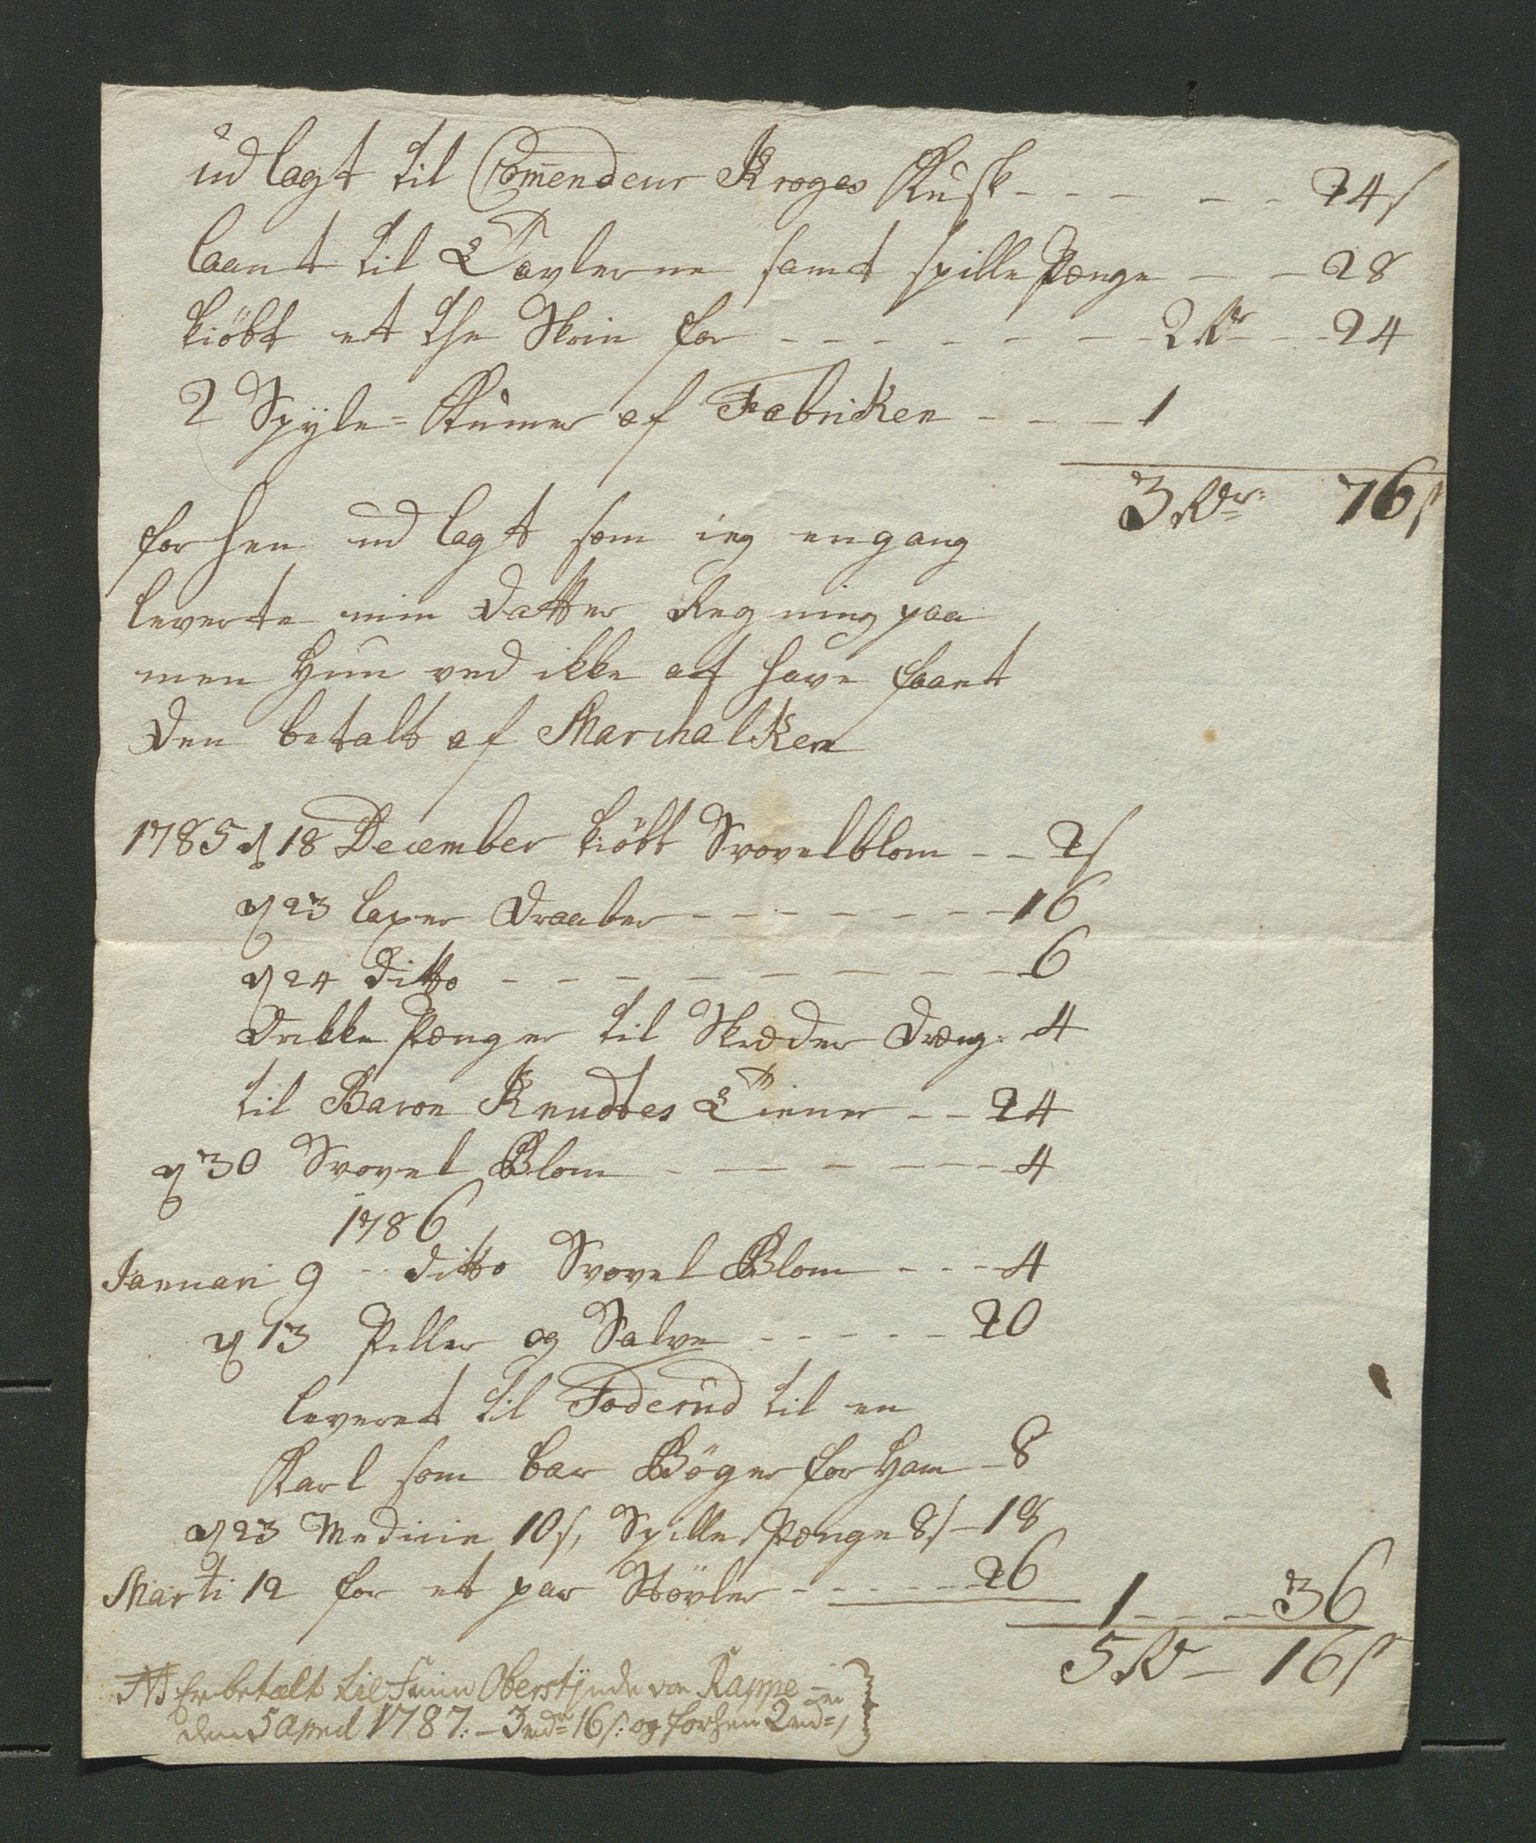 udlagt til Comendeur Kroges Kusk - - - - - 24 s
laant til Tavlerne samt spille Penge - - 28
kiöbt et the Skrin for - - - - - - - 2 Rdr - - 24
2 Spyle-Kumer af Fabriken - - - - 1
3 Rdr: 76 s
forhen udlagt som ieg engang
leverte min Datter Regning paa
men Hun ved ikke at have faaet
Den betalt af Marchalken
1785 d 18 December kiöbt Svovelblom - - 2 s
d 23 laxer Draaber - - - - - - - 16
d 24 ditto - - - - - - - - - 6
Drikke Penger til Skræder Dreng: 4
til Baron Knudtes Tiener - - 24
d 30 Svovel Blom - - - - - - 4
1786
Januari 9 - ditto Svovel Blom - - - 4
d 13 Piller og Salve - - - - - 20
leveret til Foderud til en
Karl som bar Böger for Ham - 8
d 23 Medicin 10 s, Spille Penge 8 s - 18
Marti 12 for et par Stövler - - - - - 26
1 - - - 36
5 Rdr - 16 s
NB Er betalt til Fruu Oberstinde von Kappe -
den 5 April 1787: - 3 rdr 16 s: og forhen 2 rdr,